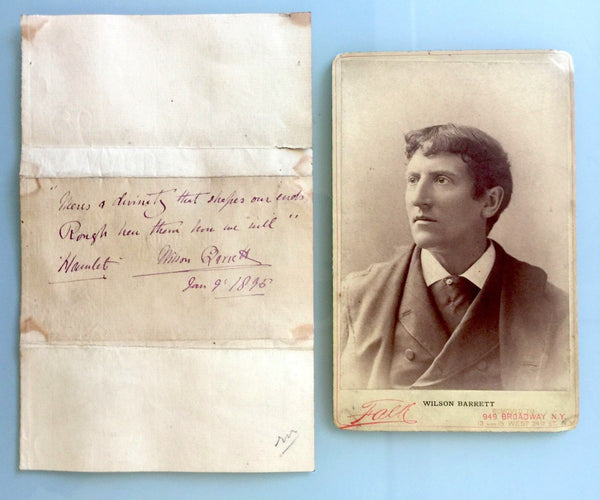 "Theres a divinity that shapes our ends
Rough hew them how we will"
"Hamlet" Wilson Barrett
Jan 9th 1895
WILSON BARRETT
Falk
949 BROADWAY, N.Y.